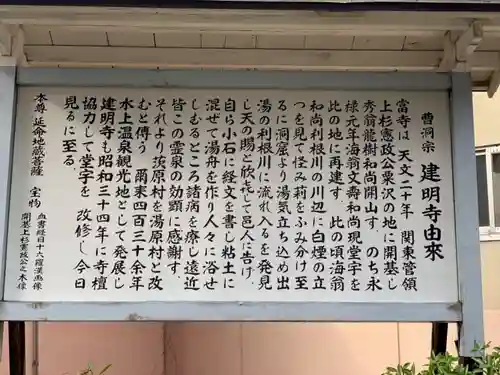 曹洞宗 建明寺由來
當寺は 天文二十年 関東管領
上杉憲政公粟沢の地に開基し
秀翁龍樹和尚開山す のち永
禄元年海翁文寿和尚現堂宇を
此の地に再建す 此の頃海翁
和尚利根川の川辺に白煙の立
つを見て怪み莉をふみ分け至
るに洞窟より湯気立ち込め出
湯の利根川に流れ入るを発見
し天の賜と欣喜して邑人に告け
自ら小石に経文を書し粘土に
混ぜて湯舟を作り人々に浴せ
しむるところ諸病を療し遠近
皆この霊泉の効顕に感謝す。
それより荻原村を湯原村と改
むと傳う 爾来四百三十余年
水上温泉観光地として発展し
建明寺も昭和三十四年に寺檀
協力して堂宇を 改修し 今日
見るに至る
本尊 延命地蔵菩薩 宝物 血書経 十六羅漢画像
開基上杉憲政公之木像